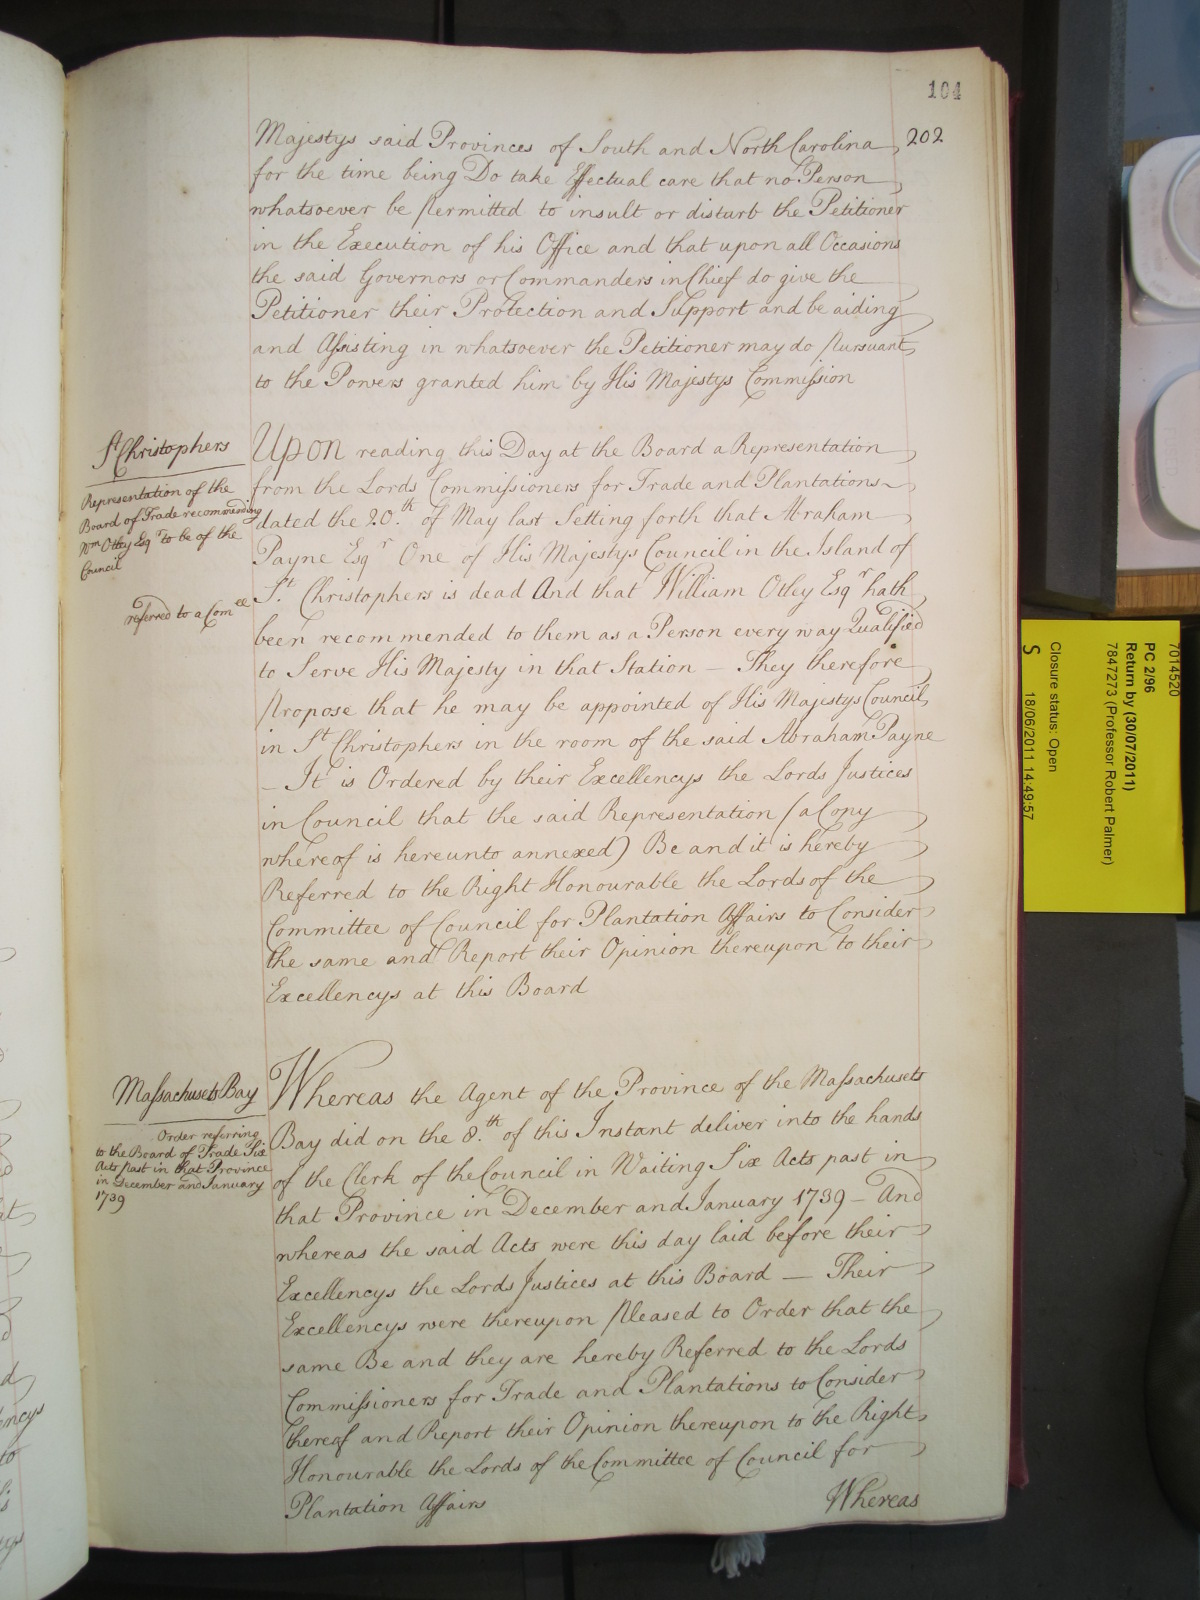 104
202
Majestys said Provinces of South and North Carolina
for the time being Do take Effectual care that no Person
whatsoever be permitted to insult or disturb the Petitioner
in the Execution of his Office and that upon all Occasions
the said Governors or Commanders in Chief do give the
Petitioner their Protection and Support and be aiding
and Assisting in whatsoever the Petitioner may do pursuant
to the Powers granted him by His Majestys Commission
St Christophers
Representation of the
Board of Trade recommending
Wm Otley Esqr to be of the
Council
referred to a Comee
Upon reading this Day at the Board a Representation
from the Lords Commissioners for Trade and Plantations
dated the 20.th of May last Setting forth that Abraham
Payne Esqr One of His Majestys Council in the Island of
St. Christophers is dead And that William Otley Esqr hath
been recommended to them as a Person every way Qualified
to Serve His Majesty in that Station — They therefore
propose that he may be appointed of His Majestys Council
in St Christophers in the room of the said Abraham Payne
— It is Ordered by their Excellencys the Lords Justices
in Council that the said Representation (a Copy
whereof is hereunto annexed) Be and it is hereby
Referred to the Right Honourable the Lords of the
Committee of Council for Plantation Affairs to Consider
the same and Report their Opinion thereupon to their
Excellencys at this Board
Massachusets Bay
Order referring
to the Board of Trade Six
Acts past in that Province
in December and January
1739
Whereas the Agent of the Province of the Massachusets
Bay did on the 8.th of this Instant deliver into the hands
of the Clerk of the Council in Waiting Six Acts past in
that Province in December and January 1739 — And
whereas the said Acts were this day laid before their
Excellencys the Lords Justices at this Board — Their
Excellencys were thereupon pleased to Order that the
same Be and they are hereby Referred to the Lords
Commissioners for Trade and Plantations to Consider
thereof and Report their Opinion thereupon to the Right
Honourable the Lords of the Committee of Council for
Plantation Affairs
Whereas
7014520
PC 2/96
Return by (30/07/2011)
7847273 (Professor Robert Palmer)
Closure status: Open
S
18/06/2011 14:49:57